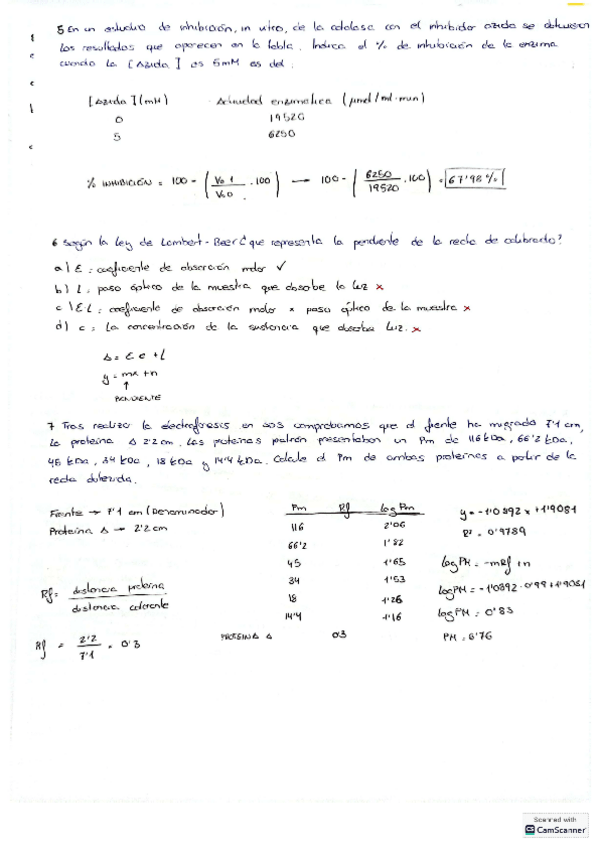 5 En un estudio de inhibición, in vitro, de la catalasa con el inhibidor azida se obtuvieron
los resultados que aparecen en la tabla. Indica el % de inhibición de la enzima
cuando la [Azida] es 5mM es del:
[Azida](mM) Actividad enzimática (μmol/ml·min)
0 19520
5 6250
% INHIBICIÓN = 100 - (V₀1/V₀0 · 100) → 100 - (6250/19520 · 100) = 67'98%
6 Según la ley de Lambert-Beer ¿que representa la pendiente de la recta de calibrado?
a) ε: coeficiente de absorción molar ✓
b) l: paso óptico de la muestra que absorbe la luz x
c) εl: coeficiente de absorción molar x paso óptico de la muestra x
d) c: la concentración de la sustancia que absorbe luz. x
A = ε c + l
y = mx + n
↑
PENDIENTE
7 Tras realizar la electroforesis en SDS comprobamos que el frente ha migrado 7'1 cm,
la proteína A 2'2 cm. Las proteínas patrón presentaban un Pm de 116 kDa, 66'2 kDa,
45 kDa, 34 kDa, 18 kDa y 14'4 kDa. Calcule el Pm de ambas proteínas a partir de la
recta obtenida.
Frente → 7'1 cm (Denominador)
Proteína A → 2'2 cm
Rf = distancia proteína / distancia colorante
Rf = 2'2/7'1 = 0'3
Pm Rf log Pm
116 2'06
66'2 1'82
45 1'65
34 1'53
18 1'26
14'4 1'16
PROTEINA A 0'3
y = -1'0892x + 1'9081
R² = 0'9789
log PM = -mRf + n
log PM = -1'0892 · 0'99 + 1'9081
log PM = 0'83
PM = 6'76
Scanned with
CS CamScanner